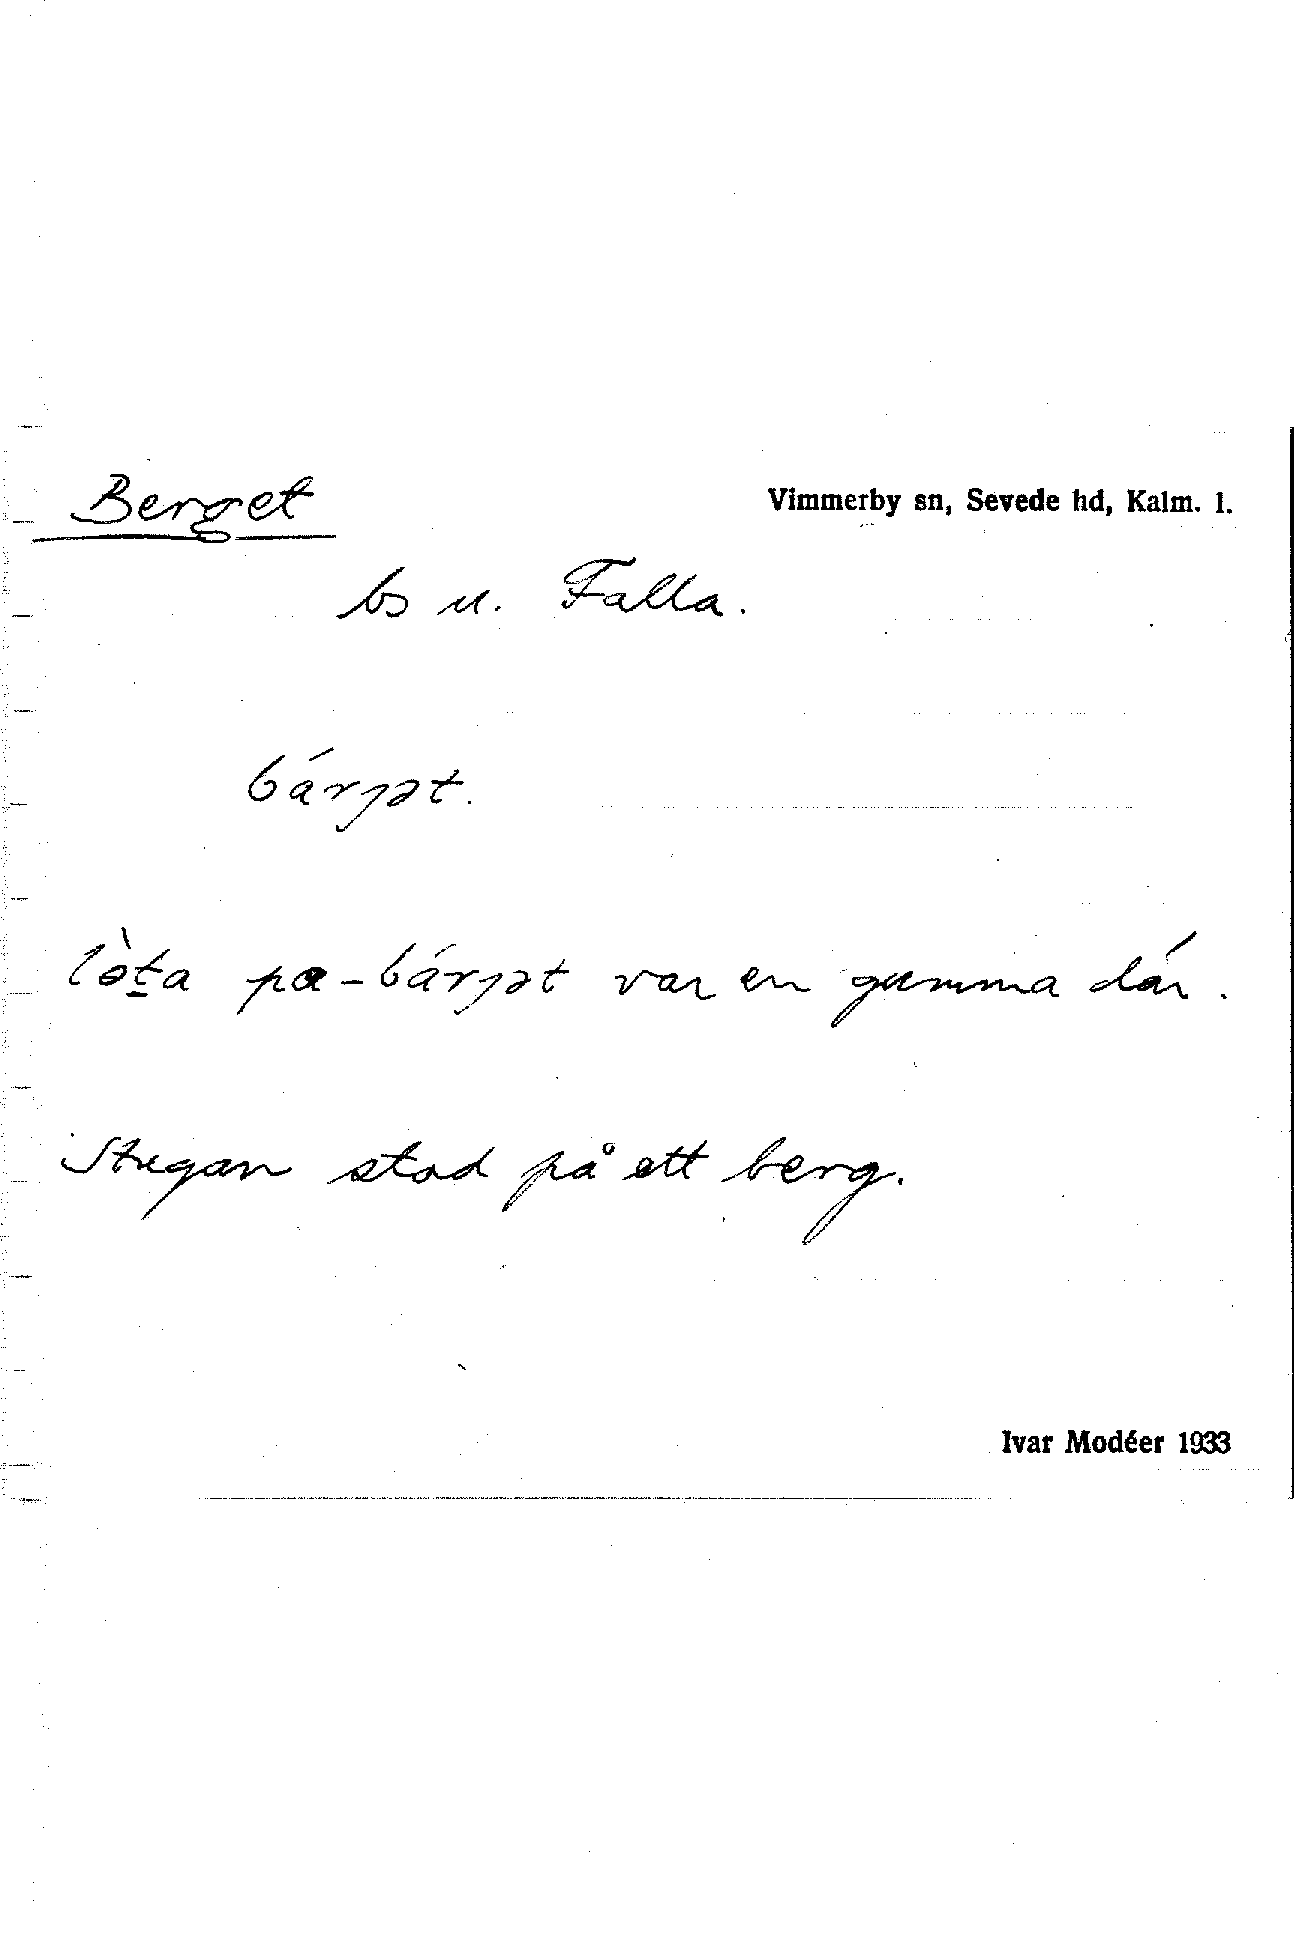 Berget
Vimmerby sn, Sevede hd, Kalm. l.
bs u. Falla.
bárjət.
lòt̲a pa-bárjət var en gumma där.
Stugan stod på ett berg.
Ivar Modéer 1933